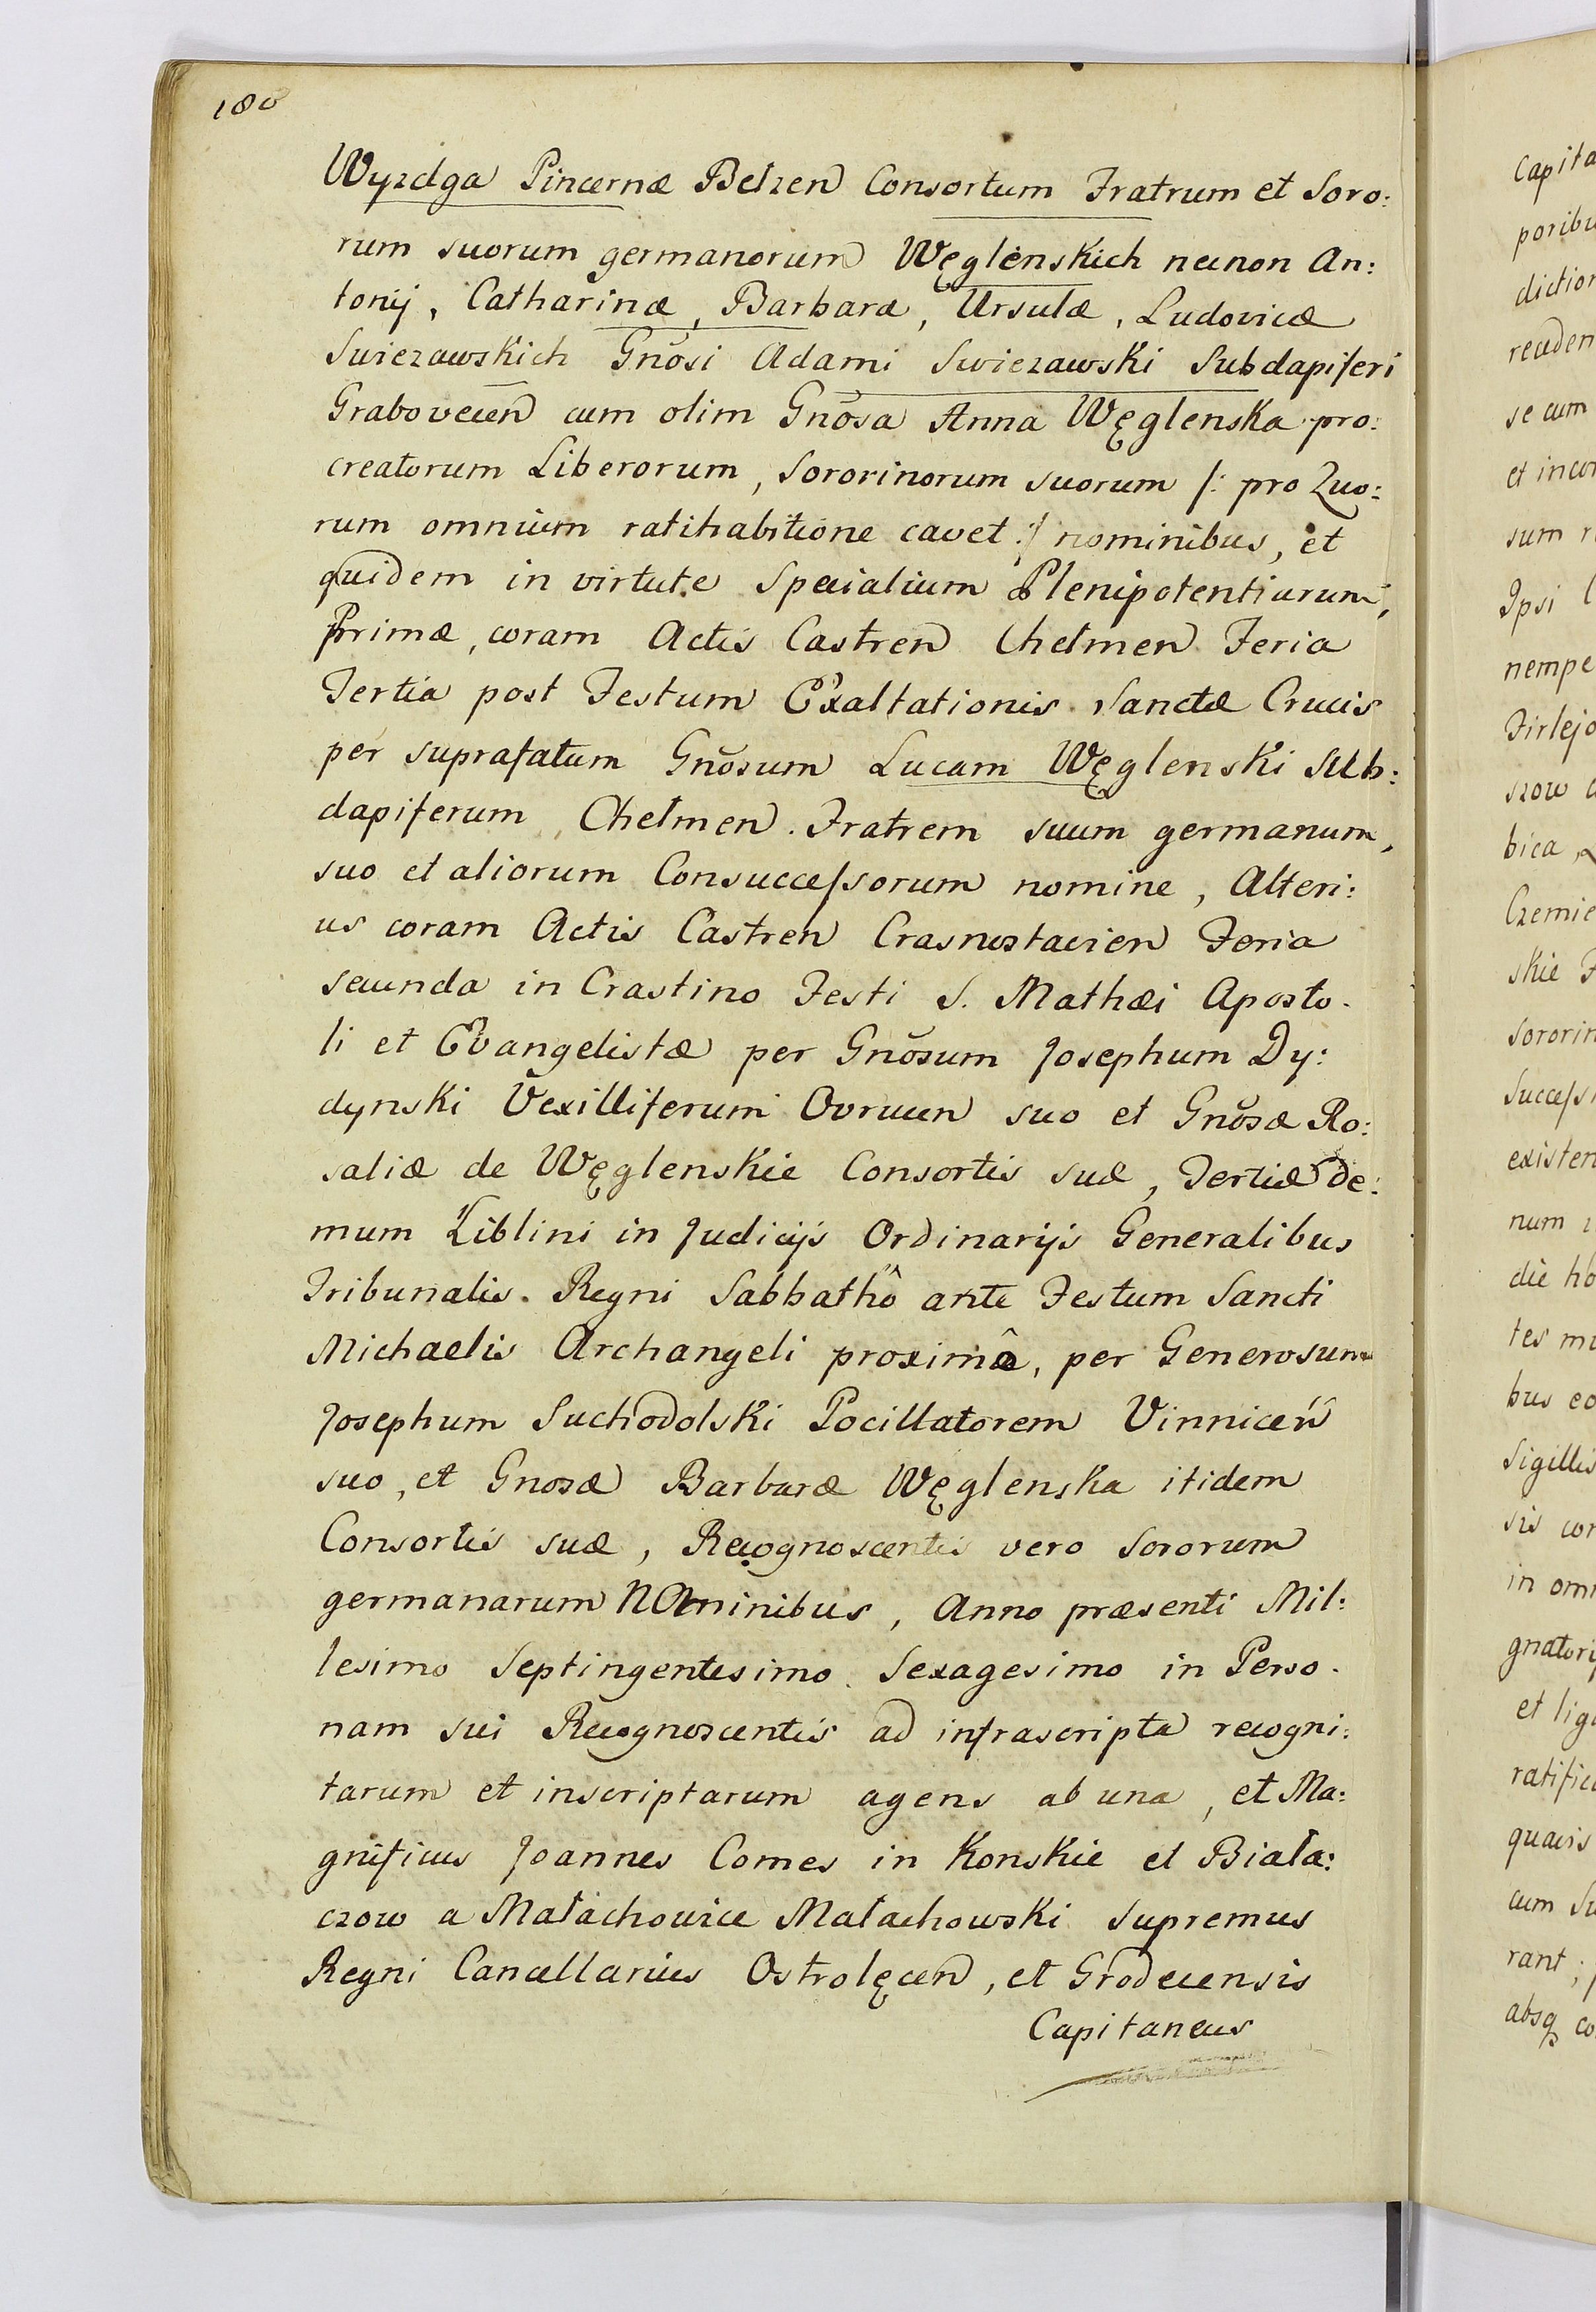 180
Wyzdga Pincernæ Belzen Consortum Fratrum et Soro:
rum suorum germanorum Węglenskich necnon An:
tonij, Catharinæ, Barbaræ, Ursulæ, Ludovicæ
Swiezawskich Gnõsi Adami Swiezawski Subdapiferi
Grabovecen cum olim Gnõsa Anna Węglenska pro:
creatorum Liberorum, Sororinorum suorum /: pro Quo:
rum omnium ratihabitione cavet :/ nominibus, et
quidem in virtute Specialium Plenipotentiarum,
Primæ, coram Actis Castren Chelmen Feria
Tertia post Festum Exaltationis Sanctæ Crucis
per suprafatum Gnõsum Lucam Węglenski Sub:
dapiferum Chelmen. Fratrem suum germanum,
suo et aliorum Consuccessorum nomine, Alteri:
us coram Actis Castren Crasnostavien Feria
secunda in Crastino Festi S. Mathæi Aposto-
li et Evangelistæ per Gnõsum Josephum Dy:
dynski Vexilliferum Ovrucen suo et Gnõsæ Ro:
saliæ de Węglenskie Consortis suæ, Tertiæ de:
mum Liblini in Judicijs Ordinarijs Generalibus
Tribunalis Regni Sabbathô ante Festum Sancti
Michaelis Archangeli proximô, per Generosum
Josephum Suchodolski Pocillatorem Vinnicen
suo, et Gnosæ Barbaræ Węglenska itidem
Consortis suæ, Recognoscentis vero Sororum
germanarum NOminibus, Anno præsenti Mil:
lesimo Septingentesimo Sexagesimo in Perso-
nam sui Recognoscentis ad infrascripta recogni:
tarum et inscriptarum agens ab una, et Ma:
gnificus Joannes Comes in Konskie et Biała:
czow a Małachowice Małachowski Supremus
Regni Cancellarius Ostrolęcen, et Grodecensis
Capitaneus
Capita
poribu
diction
se cum
et incor
sum r
Ipsi
nempe
Firlejo
szow
bica
Czemie
skie
Sororin
Success
existen
num
die ho
tes mu
bus eo
Sigillis
sis con
in omn
gnatorij
et liga
ratific
quavis
cum Su
rant;
absq co